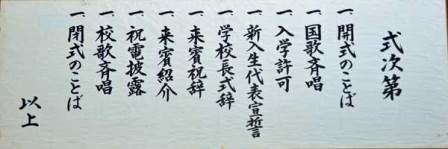 式次第
一、開式のことば
一、国歌斉唱
一、入学許可
一、新入生代表宣誓
一、学校長式辞
一、来賓祝辞
一、来賓紹介
一、祝電披露
一、校歌斉唱
一、閉式のことば
以上